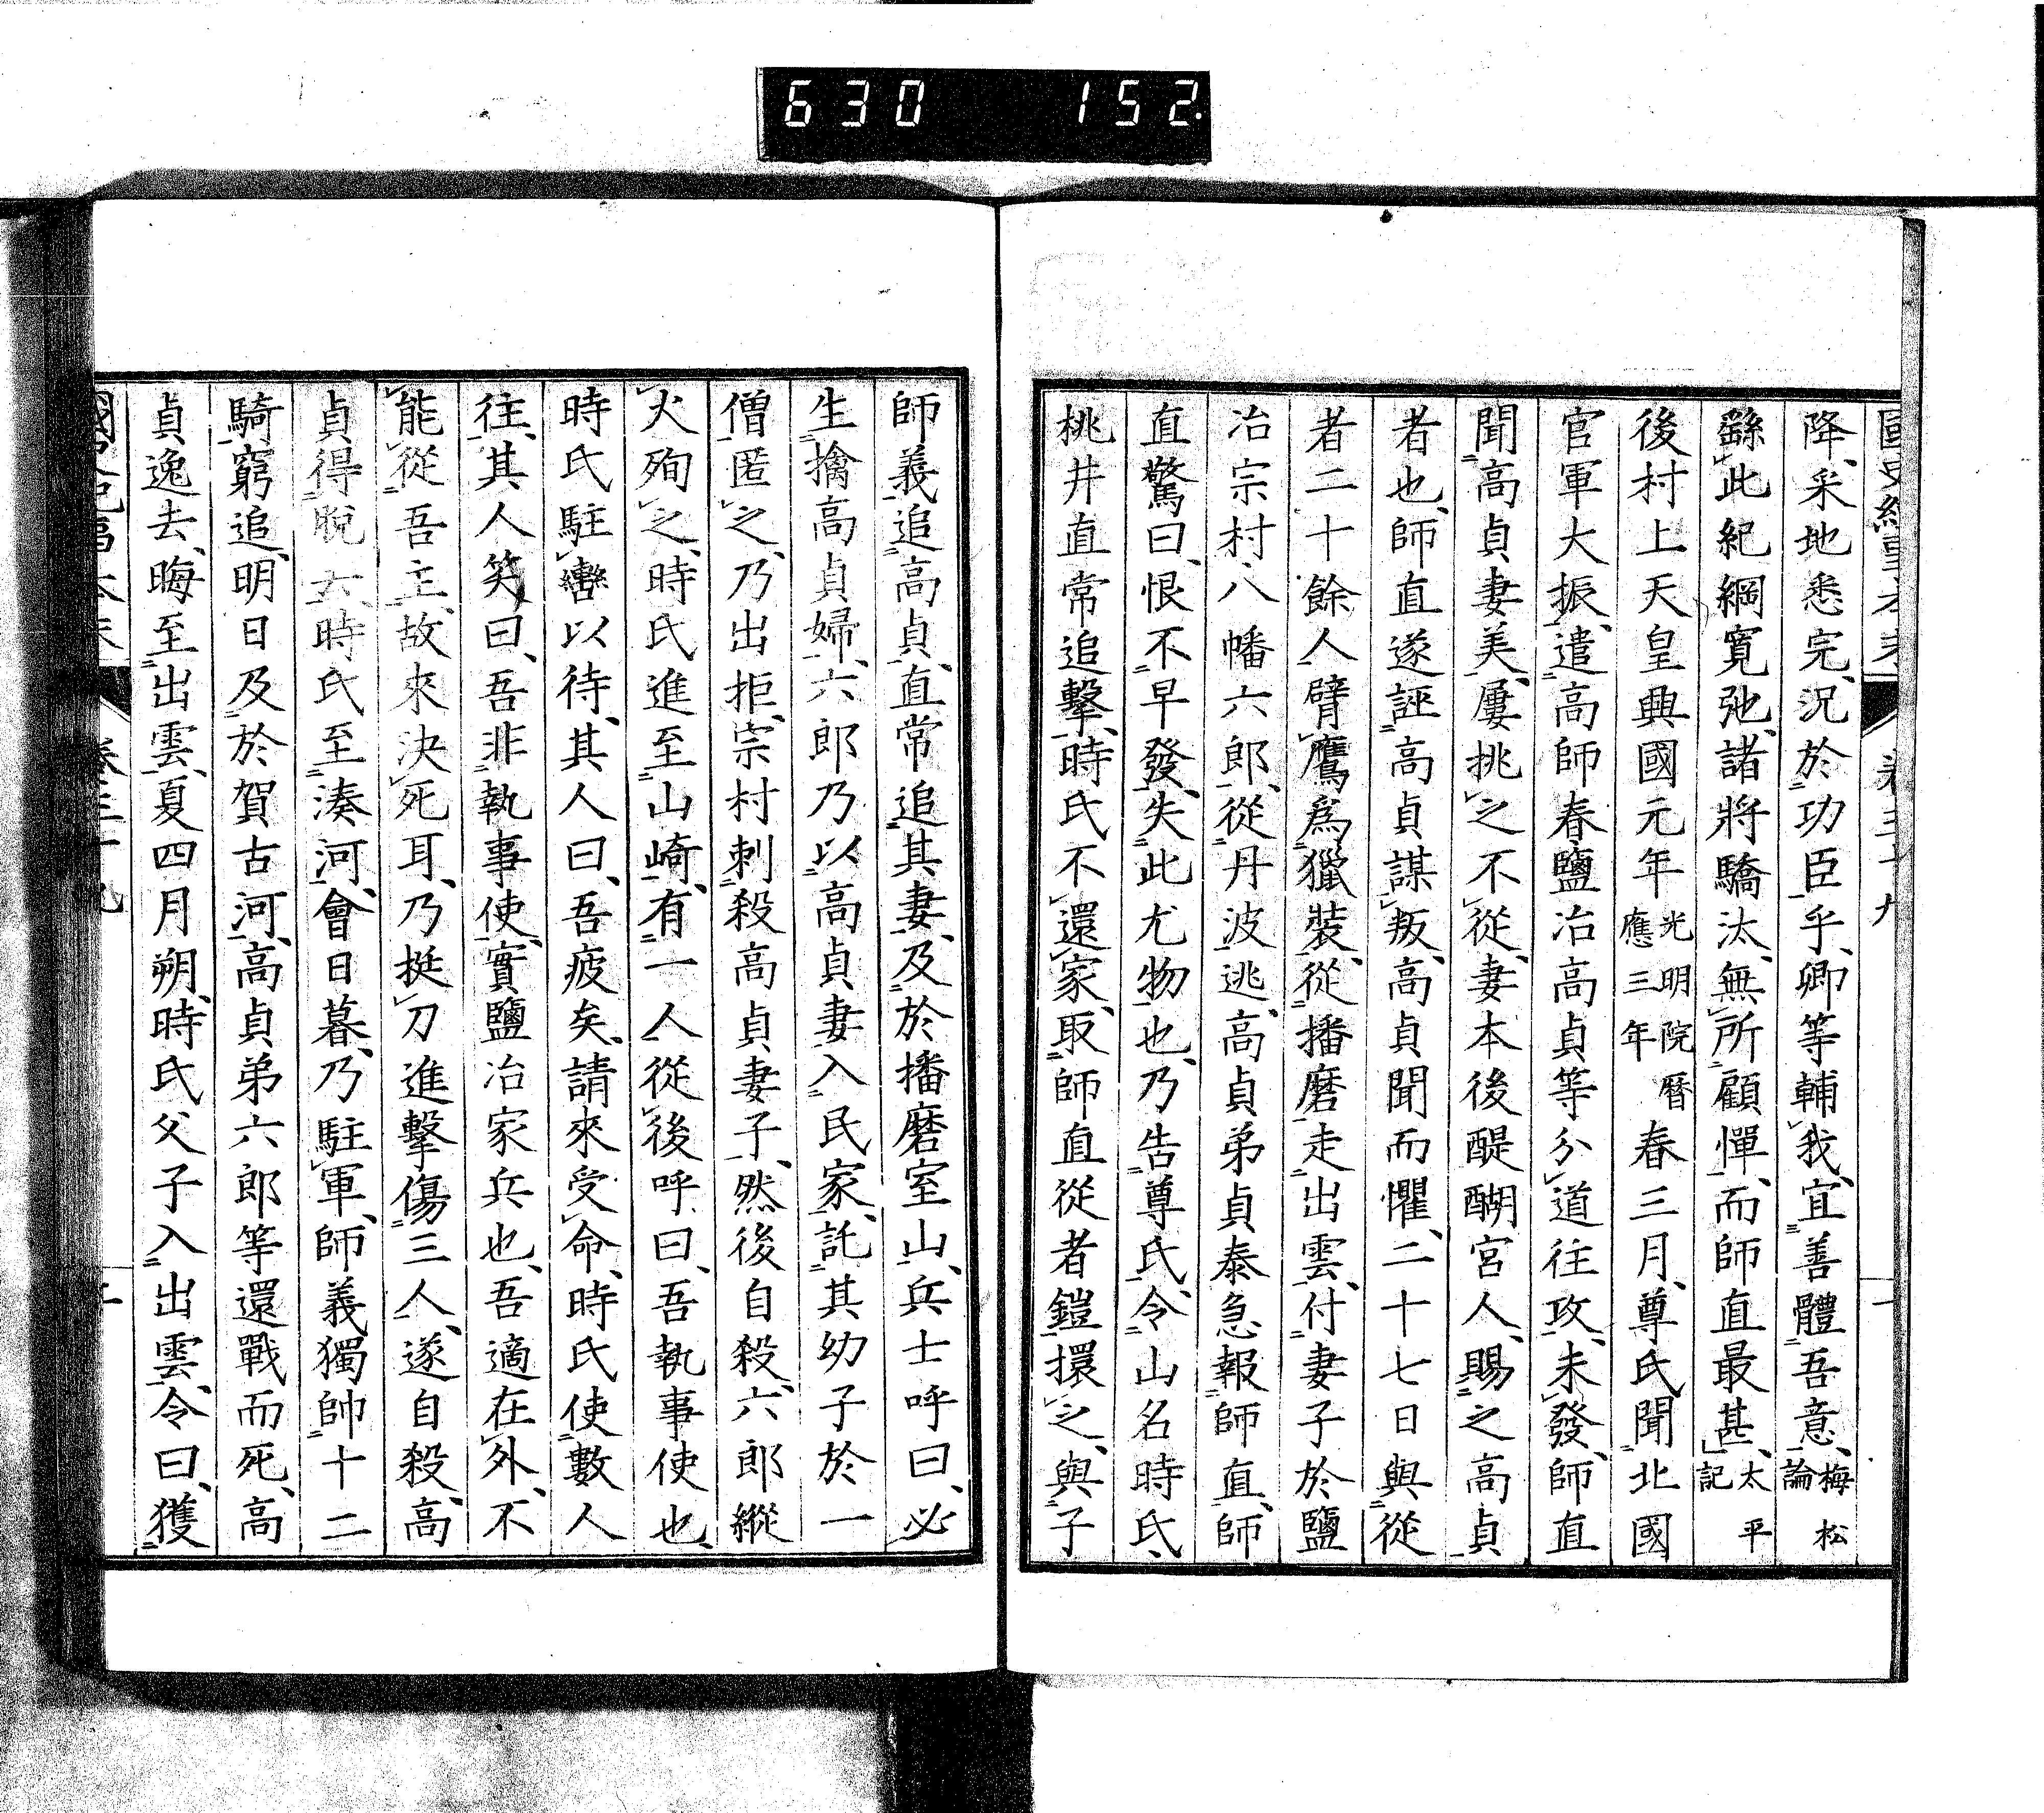 630 152
降、采地悉完、況於功臣乎、卿等輔我、宜善體吾意、梅松論
繇此紀綱寬弛、諸將驕汰、無所顧憚、而師直最甚、太平記
後村上天皇興國元年光明院曆應三年春三月、尊氏聞北國
官軍大振、遣高師春鹽冶高貞等分道往攻、未發、師直
聞高貞妻美、屢挑之不從、妻本後醍醐宮人、賜之高貞
者也、師直遂誣高貞謀叛、高貞聞而懼、二十七日與從
者二十餘人臂鷹爲獵裝、從播磨走出雲、付妻子於鹽
冶宗村八幡六郎、從丹波逃、高貞弟貞泰急報師直、師
直驚曰、恨不早發、失此尤物也、乃告尊氏、令山名時氏、
桃井直常追擊、時氏不還家、取師直從者鎧擐之、與子
師義追高貞、直常追其妻、及於播磨室山、兵士呼曰、必
生擒高貞婦、六郎乃以高貞妻入民家、託其幼子於一
僧匿之、乃出拒、宗村刺殺高貞妻子、然後自殺、六郎縱
火殉之、時氏進至山崎、有一人從後呼曰、吾執事使也、
時氏駐轡以待、其人曰、吾疲矣、請來受命、時氏使數人
往、其人笑曰、吾非執事使、實鹽冶家兵也、吾適在外、不
能從吾主、故來決死耳、乃挺刀進擊傷三人、遂自殺、高
貞得脫去、時氏至湊河、會日暮、乃駐軍、師義獨帥十二
騎窮追、明日及於賀古河、高貞弟六郎等還戰而死、高
貞逸去、晦至出雲、夏四月朔、時氏父子入出雲、令曰、獲